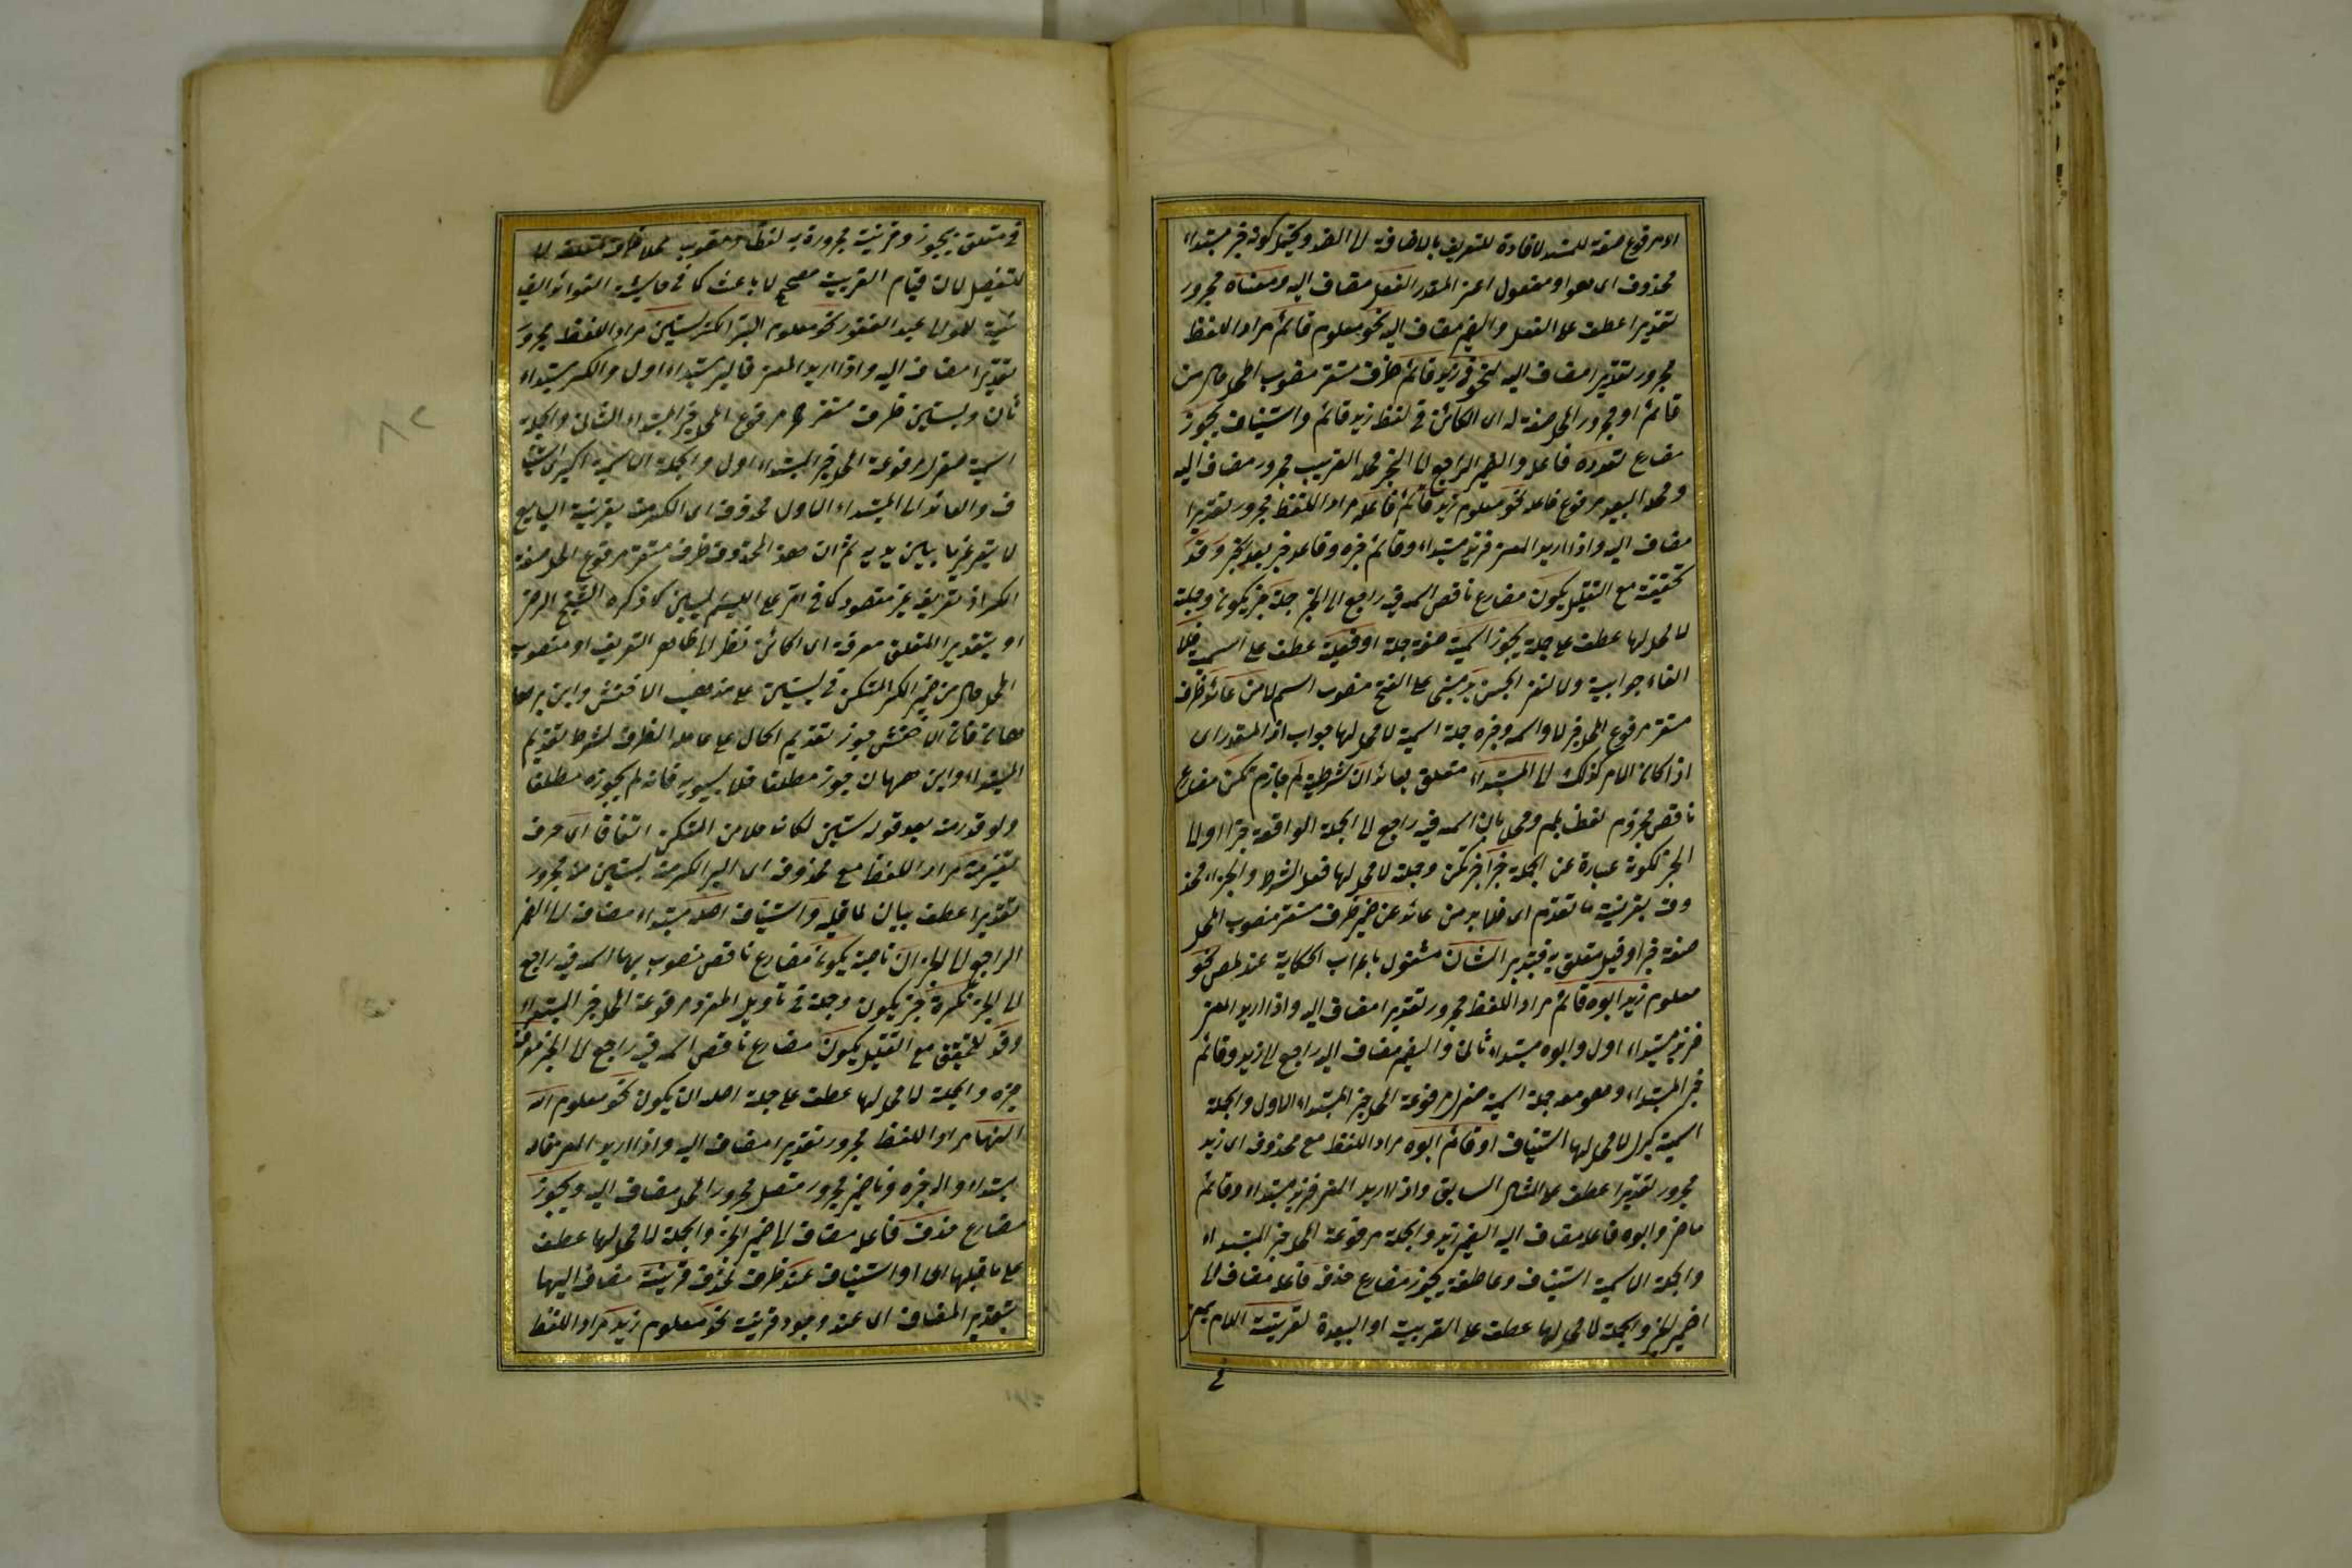 او مرفوع صفة للمسند لافادة للتعريف بالاضافة الى الضد ويحتمل كونه خبر مبتداء
محذوف اى هو او مفعول اعنى المقدر الفعل مضاف اليه ومعناه مجرور
تقديرا عطف على الفعل والضمير مضاف اليه نحو معلوم قائم مراد اللفظ
مجرور تقديرا مضاف اليه لنحو فى زيد قائم ظرف مستقر منصوب المحل حال من
قائم او مجرور المحل صفة له اى الكائن فى لفظ زيد قائم واستيناف يجوز
مضارع تعدده فاعله والضمير الراجع الى الخبر محله القريب مجرور مضاف اليه
ومحله البعيد مرفوع فاعله نحو معلوم زيد قائم قاعد مراد اللفظ مجرور تقديرا
مضاف اليه واذا اريد المعنى فزيد مبتداء وقائم خبره وقاعد خبر بعد خبر وقد
تحقيقة مع التقليل يكون مضارع ناقص اسمه فيه راجع الى الخبر جملة خبر يكون وجملة
لا محل لها عطف على جملة يجوز اسمية صفة جملة او فعلية عطف على اسمية فلا
الفاء جوابية ولا لنفى الجنس بد مبنى على الفتح منصوب اسم لا من عائد ظرف
مستقر مرفوع المحل خبر لا واسمه وخبره جملة اسمية لا محل لها جواب اذا المقدر اى
اذا كان الامر كذلك الى المبتداء متعلق بعائد ان شرطية لم جازم تكن مضارع
ناقص مجزوم لفظا بلم ومحلا بان اسمه فيه راجع الى الجملة الواقعة خبرا او الى
الخبر لكونه عبارة عن الجملة خبرا خبر تكن وجملة لا محل لها فعل الشرط والجزاء محذ
وف بقرينة ما تقدم اى فلا بد من عائد عن ضمير ظرف مستقر منصوب المحل
صفة خبرا وقيل متعلق به فتدبر الشان مشغول باعراب الحكاية عند بعض نحو
معلوم زيد ابوه قائم مراد اللفظ مجرور تقديرا مضاف اليه واذا اريد المعنى
فزيد مبتداء اول وابوه مبتداء ثان والضمير مضاف اليه راجع الى زيد وقائم
خبر المبتداء وهو معه جملة اسمية صغرى مرفوعة المحل خبر المبتداء الاول والجملة
اسمية كبرى لا محل لها استيناف او قائم ابوه مراد اللفظ مع محذوف اى زيد
مجرور تقديرا عطف على المثال السابق واذا اريد المعنى فزيد مبتداء وقائم
ماض وابوه فاعله مضاف اليه الضمير زيد والجملة مرفوعة المحل خبر المبتداء
والجملة الاسمية استيناف وعاطفة يجوز مضارع حذف فاعله مضاف الى
ضمير الخبر والجملة لا محل لها عطف على القريبة او البعيدة لقرينة اللام بمعنى
فى
فى متعلق بيجوز وقرينة مجرورة به لفظا ومنصوب محلا متعلقة لا
للتفضيل لان قيام القرينة مصحح لا باعث كما فى حاشية الفوائد الضيا
ئية للمولى عبد الغفور نحو معلوم البر الكر بستين مراد اللفظ مجرور
تقديرا مضاف اليه واذا اريد المعنى فالبر مبتداء اول والكر مبتداء
ثان وبستين ظرف مستقر مرفوع المحل خبر المبتداء الثانى والجملة
اسمية صغرى مرفوعة المحل خبر المبتداء اول والجملة الاسمية الكبرى استينا
ف والعائد الى المبتداء الاول محذوف اى الكر منه بقرينة البايع
لا يسعر غير ما بين يديه ثم ان هذا المحذوف ظرف مستقر مرفوع المحل صفة
الكر اذ تعريفه غير مقصود كما فى امر على اللئيم يسبنى كما ذكره الشيخ الرضى
او بتقدير المتعلق معرفة اى الكائن نظرا الى ظاهر التعريف او منصوب
المحل حال من ضمير الكر المستكن فى بستين على مذهب الاخفش وابن برها
هان فان الاخفش جوز تقديم الحال على عامله الظرف لشرط تقديم
المبتداء وابن همهان جوز مطلقا خلا سيبويه فانه لم يجوزه مطلقا
ولو قدر منه بعد قوله ستين لكان حلا من المستكن اتفاقا اى حرف
تفسير منه مراد اللفظ مع محذوفه اى البر الكر منه بستين منه مجرور
تقديرا عطف بيان لما قبله واستيناف اصله مبتداء مضاف الى الضمير
الراجع الى الخبر ان ناصبة يكون مضارع ناقص منصوب بها اسمه فيه راجع
الى الخبر نكرة خبر يكون وجملة فى تأويل المفرد مرفوعة المحل خبر المبتداء
وقد للتحقيق مع التقليل يكون مضارع ناقص اسمه فيه راجع الى الخبر معرفة
خبره والجملة لا محل لها عطف على جملة اصله ان يكون نحو معلوم الله
الهنا مراد اللفظ مجرور تقديرا مضاف اليه واذا اريد المعنى فالله
مبتداء واله خبره ونا ضمير مجرور متصل مجرور المحل مضاف اليه ويجوز
مضارع حذف فاعله مضاف الى ضمير الخبر والجملة لا محل لها عطف
على ما قبلها اى او استيناف عند ظرف لحذف قرينة مضاف اليها
بتقدير المضاف اى عند وجود قرينة نحو معلوم زيد مراد اللفظ